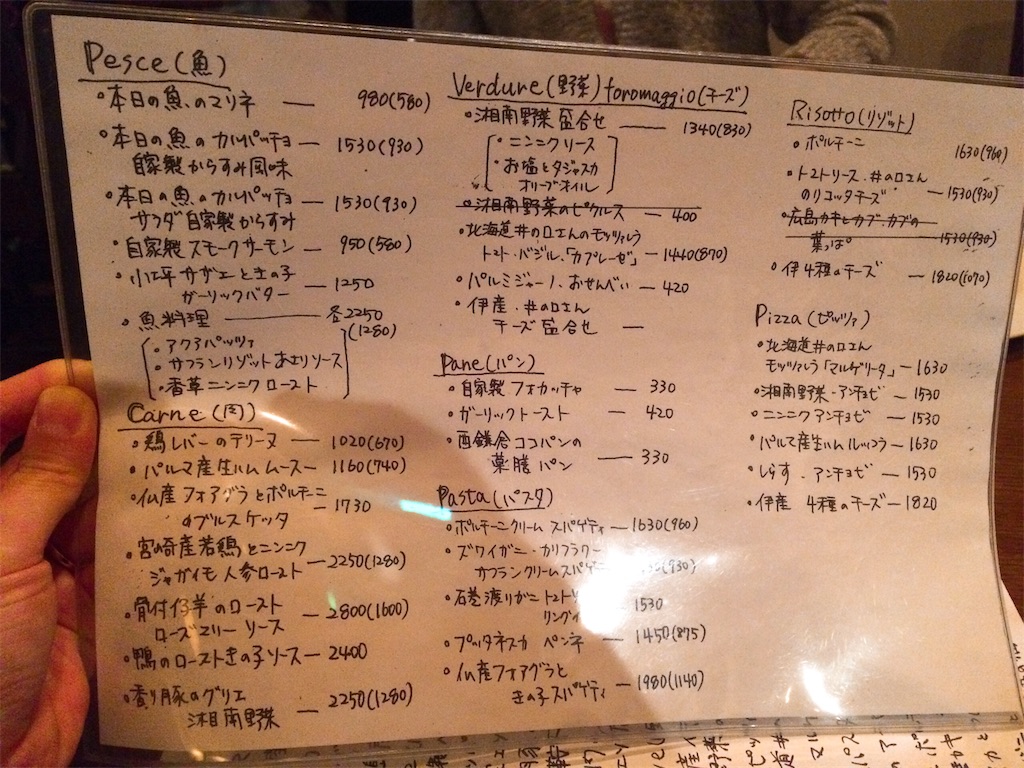 Pesce(魚)
・本日の魚のマリネ — 980(580)
・本日の魚のカルパッチョ — 1530(930)
自家製からすみ風味
・本日の魚のカルパッチョ — 1530(930)
サラダ自家製からすみ
・自家製スモークサーモン — 950(580)
・小坪サザエときの子
ガーリックバター — 1250
・魚料理 — 各2250
(1280)
・アクアパッツァ
・サフランリゾットあさりソース
・香草ニンニクロースト
Carne(肉)
・鶏レバーのテリーヌ — 1020(670)
・パルマ産生ハムムース — 1160(740)
・仏産フォアグラとポルチーニ
のブルスケッタ — 1730
・宮崎産若鶏とニンニク
ジャガイモ人参ロースト — 2250(1280)
・骨付仔羊のロースト — 2800(1600)
ローズマリーソース
・鴨のローストきの子ソース — 2400
・香り豚のグリエ — 2250(1280)
湘南野菜
Verdure(野菜)foromaggio(チーズ)
・湘南野菜盛合せ — 1340(830)
・ニンニクソース
・お塩とタジャスカ
オリーブオイル
・湘南野菜のピクルス — 400
・北海道井の口さんのモッツァレラ
トマト・バジル・「カプレーゼ」 — 1440(870)
・パルミジャーノ、おせんべい — 420
・伊産・井の口さん
チーズ盛合せ —
Pane(パン)
・自家製フォカッチャ — 330
・ガーリックトースト — 420
・西鎌倉ココパンの
薬膳パン — 330
Pasta(パスタ)
・ポルチーニクリームスパゲティ — 1630(960)
・ズワイガニ・カリフラワー
サフランクリームスパゲティ (930)
・石巻渡りガニトマトソ
リングイ 1530
・プッタネスカ ペンネ — 1450(875)
・仏産フォアグラと
きの子スパゲティ — 1980(1140)
Risotto(リゾット)
・ポルチーニ 1630(960)
・トマトソース・井の口さん
のリコッタチーズ — 1530(930)
・広島カキとカブ・カブの
葉っぱ 1530(930)
・伊4種のチーズ — 1820(1070)
Pizza(ピッツァ)
・北海道井の口さん
モッツァレラ「マルゲリータ」 — 1630
・湘南野菜・アンチョビ — 1530
・ニンニクアンチョビ — 1530
・パルマ産生ハムルッコラ — 1630
・しらす・アンチョビ — 1530
・伊産 4種のチーズ — 1820